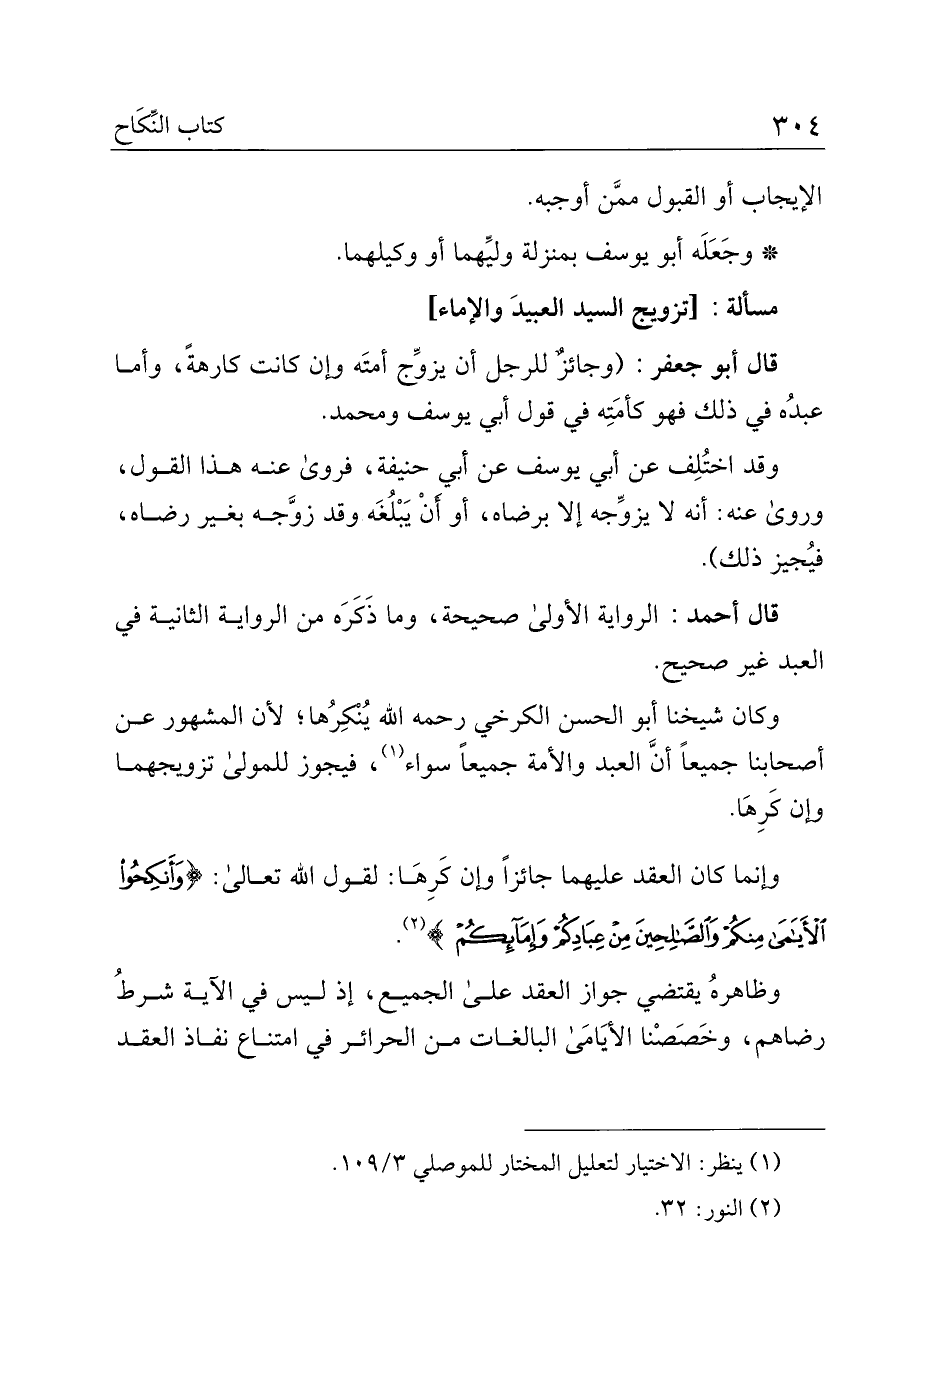 ٣٠٤ كتاب النِّكَاح
الإيجاب أو القبول ممَّن أوجبه.
* وجَعَلَه أبو يوسف بمنزلة وليِّهما أو وكيلهما.
مسألة : [تزويج السيد العبيدَ والإماء]
قال أبو جعفر : (وجائزٌ للرجل أن يزوِّج أمتَه وإن كانت كارهةً، وأما
عبدُه في ذلك فهو كأمَتِه في قول أبي يوسف ومحمد.
وقد اختُلِف عن أبي يوسف عن أبي حنيفة، فروىٰ عنه هذا القول،
وروىٰ عنه: أنه لا يزوِّجه إلا برضاه، أو أَنْ يَبْلُغَه وقد زوَّجه بغير رضاه،
فيُجيز ذلك).
قال أحمد : الرواية الأولىٰ صحيحة، وما ذَكَرَه من الرواية الثانية في
العبد غير صحيح.
وكان شيخنا أبو الحسن الكرخي رحمه الله يُنْكِرُها؛ لأن المشهور عن
أصحابنا جميعاً أنَّ العبد والأمة جميعاً سواء(١)، فيجوز للمولىٰ تزويجهما
وإن كَرِهَا.
وإنما كان العقد عليهما جائزاً وإن كَرِهَا: لقول الله تعالىٰ: ﴿وَأَنكِحُوا۟
ٱلْأَيَـٰمَىٰ مِنكُمْ وَٱلصَّـٰلِحِينَ مِنْ عِبَادِكُمْ وَإِمَآئِكُمْ ﴾(٢).
وظاهرهُ يقتضي جواز العقد علىٰ الجميع، إذ ليس في الآية شرطُ
رضاهم، وخَصَصْنا الأيَامَىٰ البالغات من الحرائر في امتناع نفاذ العقد
(١) ينظر: الاختيار لتعليل المختار للموصلي ١٠٩/٣.
(٢) النور: ٣٢.